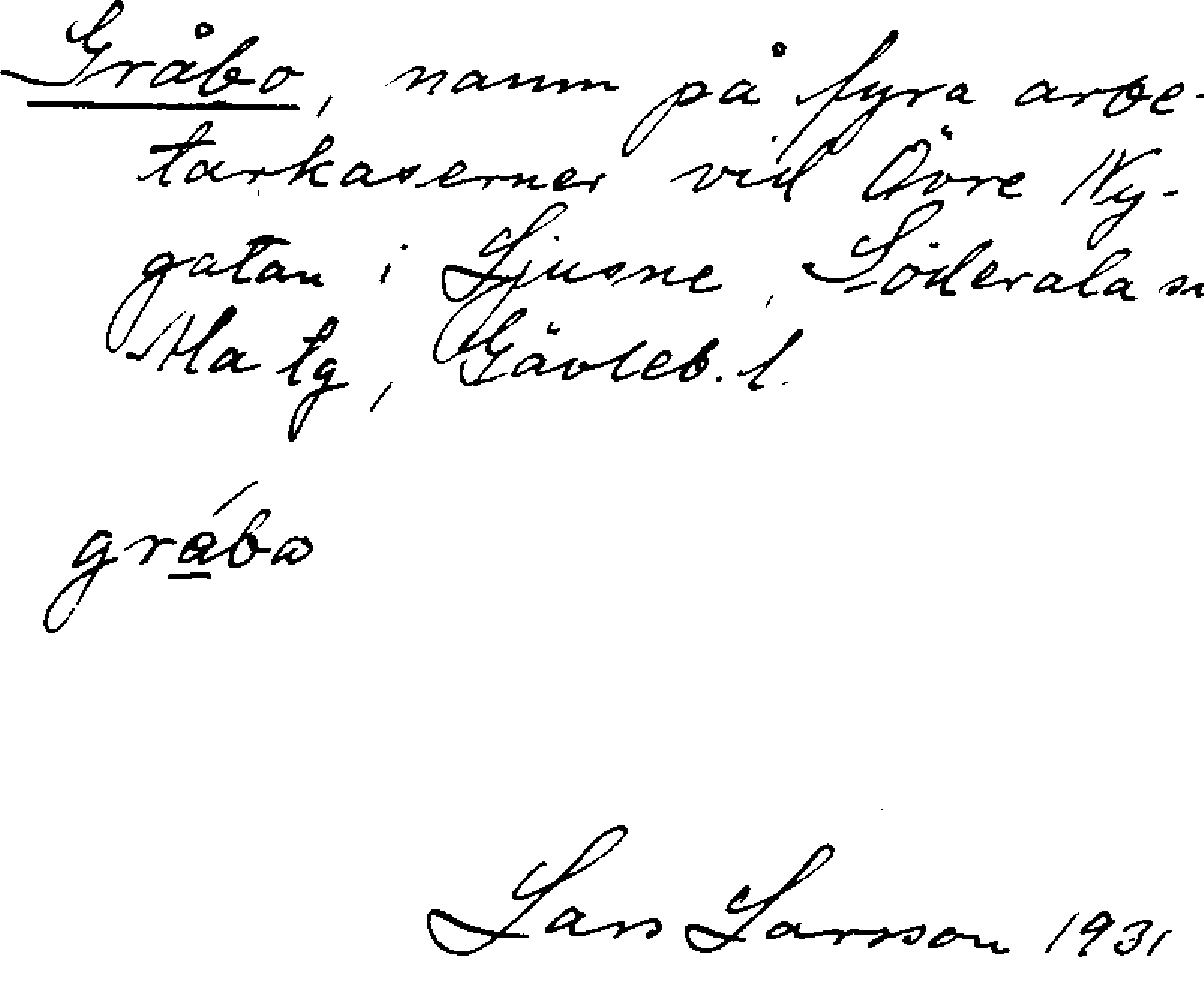 Gråbo, namn på fyra arbe-
tarkaserner vid Övre Ny-
gatan i Ljusne, Söderala sn
Ala tg, Gävleb. l.
gråbo
Lars Larsson 1931